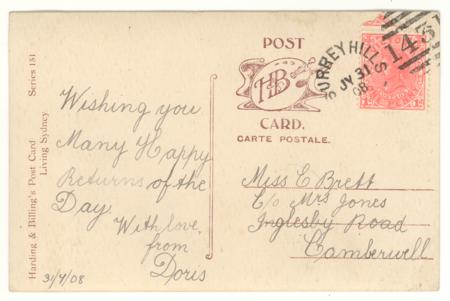 POST
HB
CARD.
CARTE POSTALE.
SURREY HILLS
JY 31
08
143
Series 151
Living Sydney
Harding & Billing's Post Card
Wishing you
Many Happy
Returns of the
Day.
With love,
from
Doris
31/7/08
Miss C Brett
C/o Mrs Jones
Inglesby Road
Camberwell